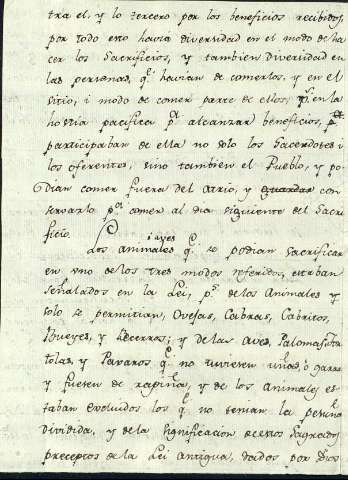 tra el, y lo tercero por los beneficios recibidos,
por todo esto havia diversidad en el modo de ha
cer los Sacrificios, y tambien diversidad en
las personas, q.e havian de comerlos, y en el
sitio, i modo de comer parte de ellos; p.s en la
hostia pacifica p.a alcanzar beneficios,
participaban de ella no solo los Sacerdotes i
los oferentes, sino tambien el Pueblo, y po
dian comer fuera del atrio, y guardar con
servarlo p.a comer al dia siguiente del Sacri
ficio.
i aves
Los animales q.e se podian sacrificar
en uno de los tres modos referidos, estaban
señalados en la Lei, p.s de los Animales
solo se permitian, Ovejas, Cabras, Cabritos,
Bueyes, y Becerros; y de las Aves, Palomas, Tor
tolas, y Paxaros q.e no tuviesen uñas, o garras
y fuesen de rapiña, y de los animales es
taban excluidos los q.e no tenian la pesuña
dividida, y de la significacion de estos sagrados
preceptos de la Lei Antigua, dados por Dios